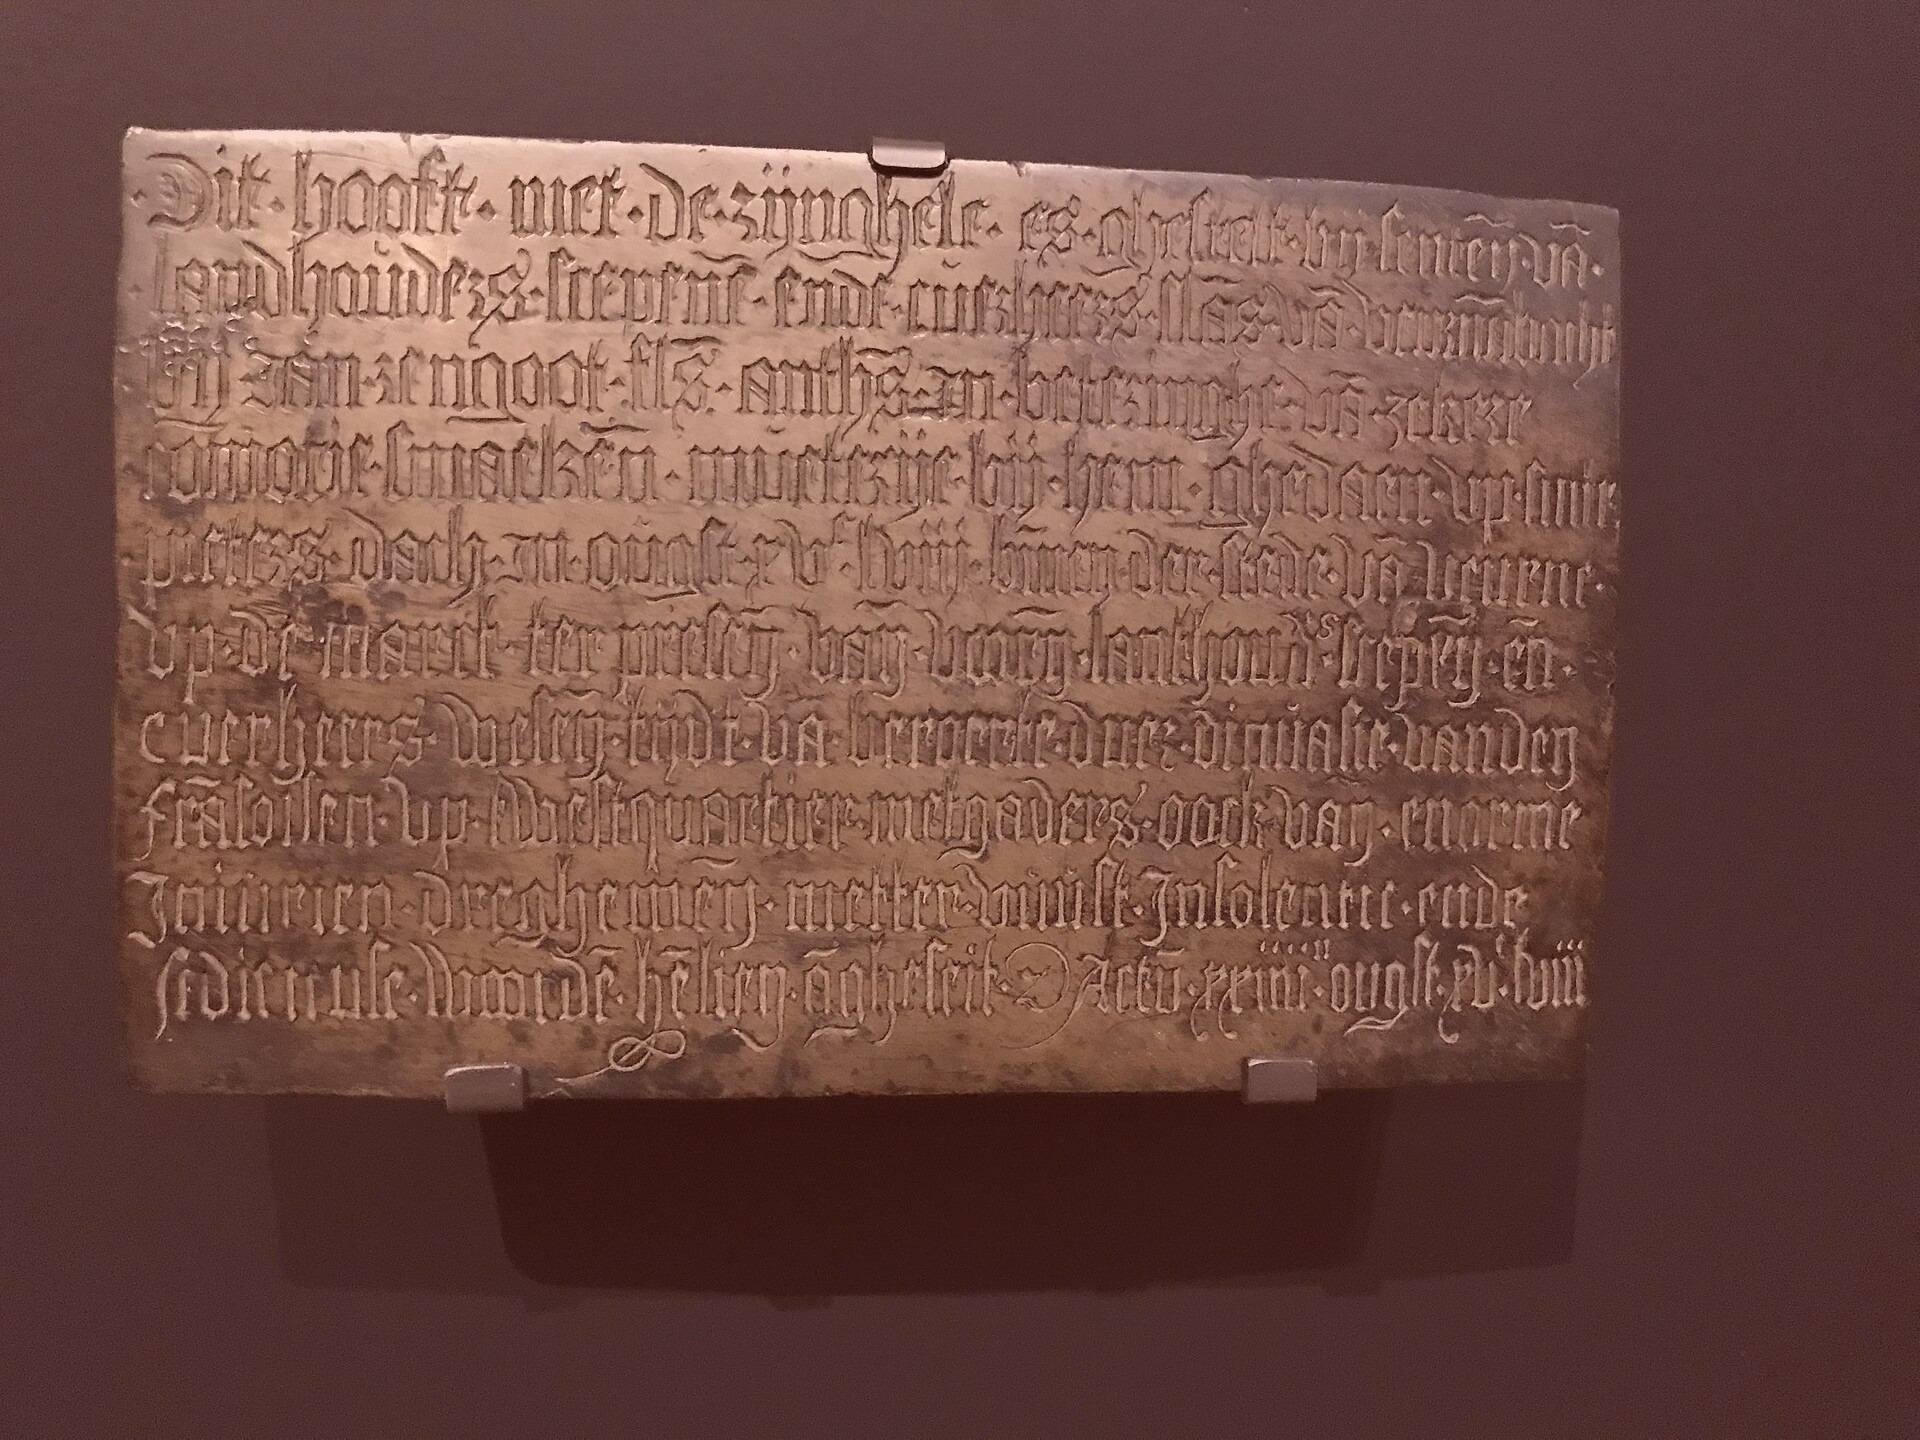 Dit · hooft · met · de · zijnghele · es · ghestelt · bij sentēn · vā ·
landhouders · scepenē · ende · cuerheers · slās · vā · vuerñābocht
bij Jan · zengoot · fls̄ · anthš · In · beteringhe · vā · zekere
cōmotie · smaeckēn · muetezije · bij · hem · ghedaen · up · sinte
pieters · dach · In · ougst · xvc · lviij · bīnen · der · stede · vā veurne ·
up · dē marct · ter presēn · van · voorñ · lanthoudrs · scepēn · eñ ·
cuerheers · wesēn · tijdt · vā · beroerte · duer · dinvasie · vanden
frāsoisen · up · twestquartier · metgaders · oock · van · enorme
Iniurien · dreghemēn · metter · vuust · Insolentie · ende
sedicieuse · woordē · hēlien · āgheseit · Actū · xxiiii · ougst · xvc · lviii